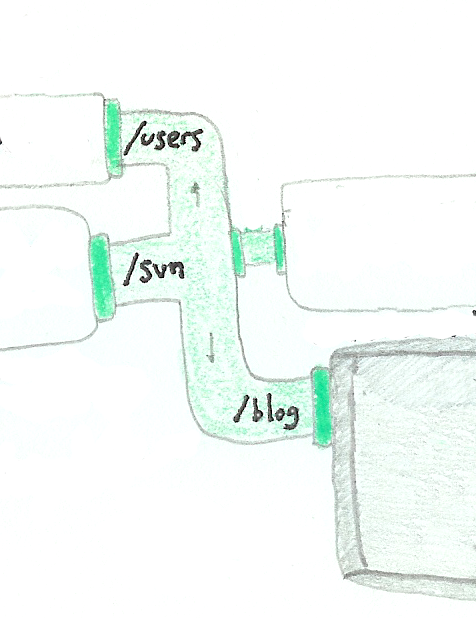 /users
/svn
/blog